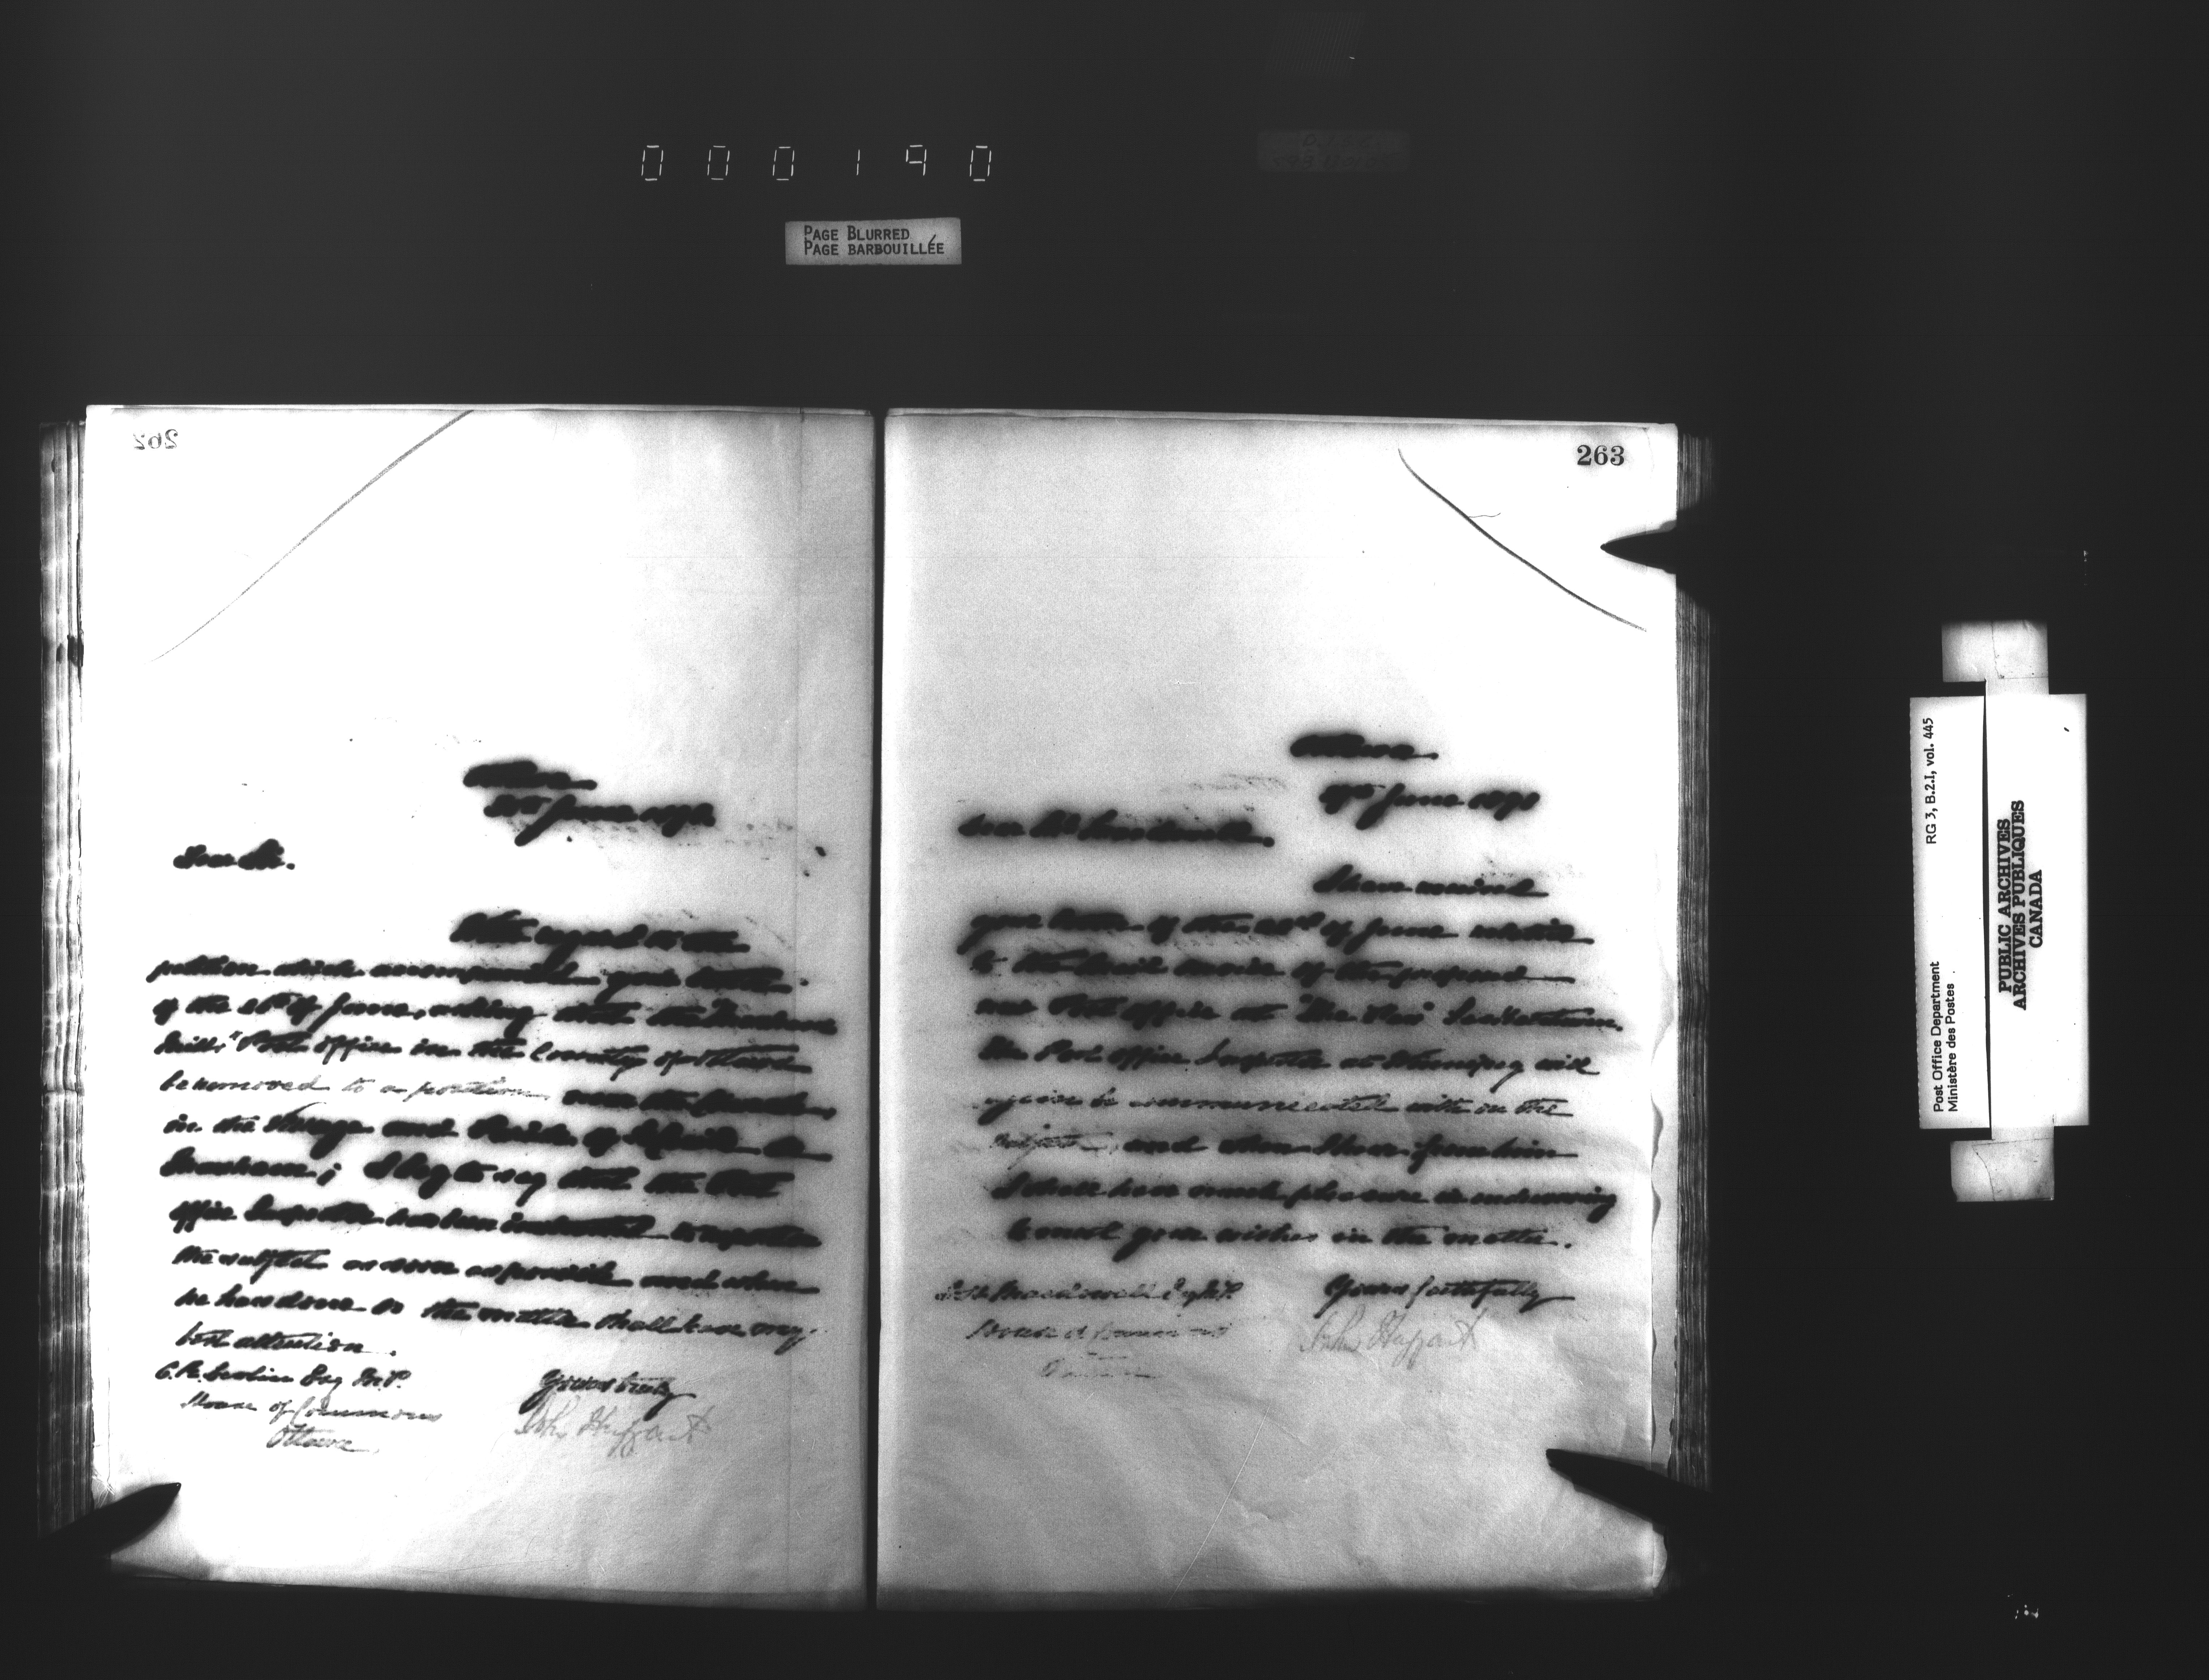 000190
PAGE BLURRED
PAGE BARBOUILLÉE
262
Ottawa
June 1890
Dear Sir.
With regard to the
petition which accompanied your letter
of the of June, asking that the
Mills" Post office in the County of Ottawa
be removed to a position near the Church
in the Village and Parish of
Masham; I beg to say that the Post
office Inspector has been instructed to report on
the subject as soon as possible and when
he has done so the matter shall have my
best attention.
Yours truly
John Haggart
C. R. Devlin Esq M.P.
House of Commons
Ottawa
263
Ottawa.
June 1890
Dear Mr Macdowall.
I have received
your letter of the of June relative
to the mail service of the proposed
new Post office at "The Pas" Saskatchewan.
The Post office Inspector at Winnipeg will
again be communicated with on the
subject, and when I hear from him
I shall have much pleasure in endeavoring
to meet your wishes in the matter.
Yours faithfully
John Haggart
Macdowall Esq M.P.
House of Commons
Ottawa
Post Office Department
Ministère des Postes
RG 3, B.2.I, vol. 445
PUBLIC ARCHIVES
ARCHIVES PUBLIQUES
CANADA